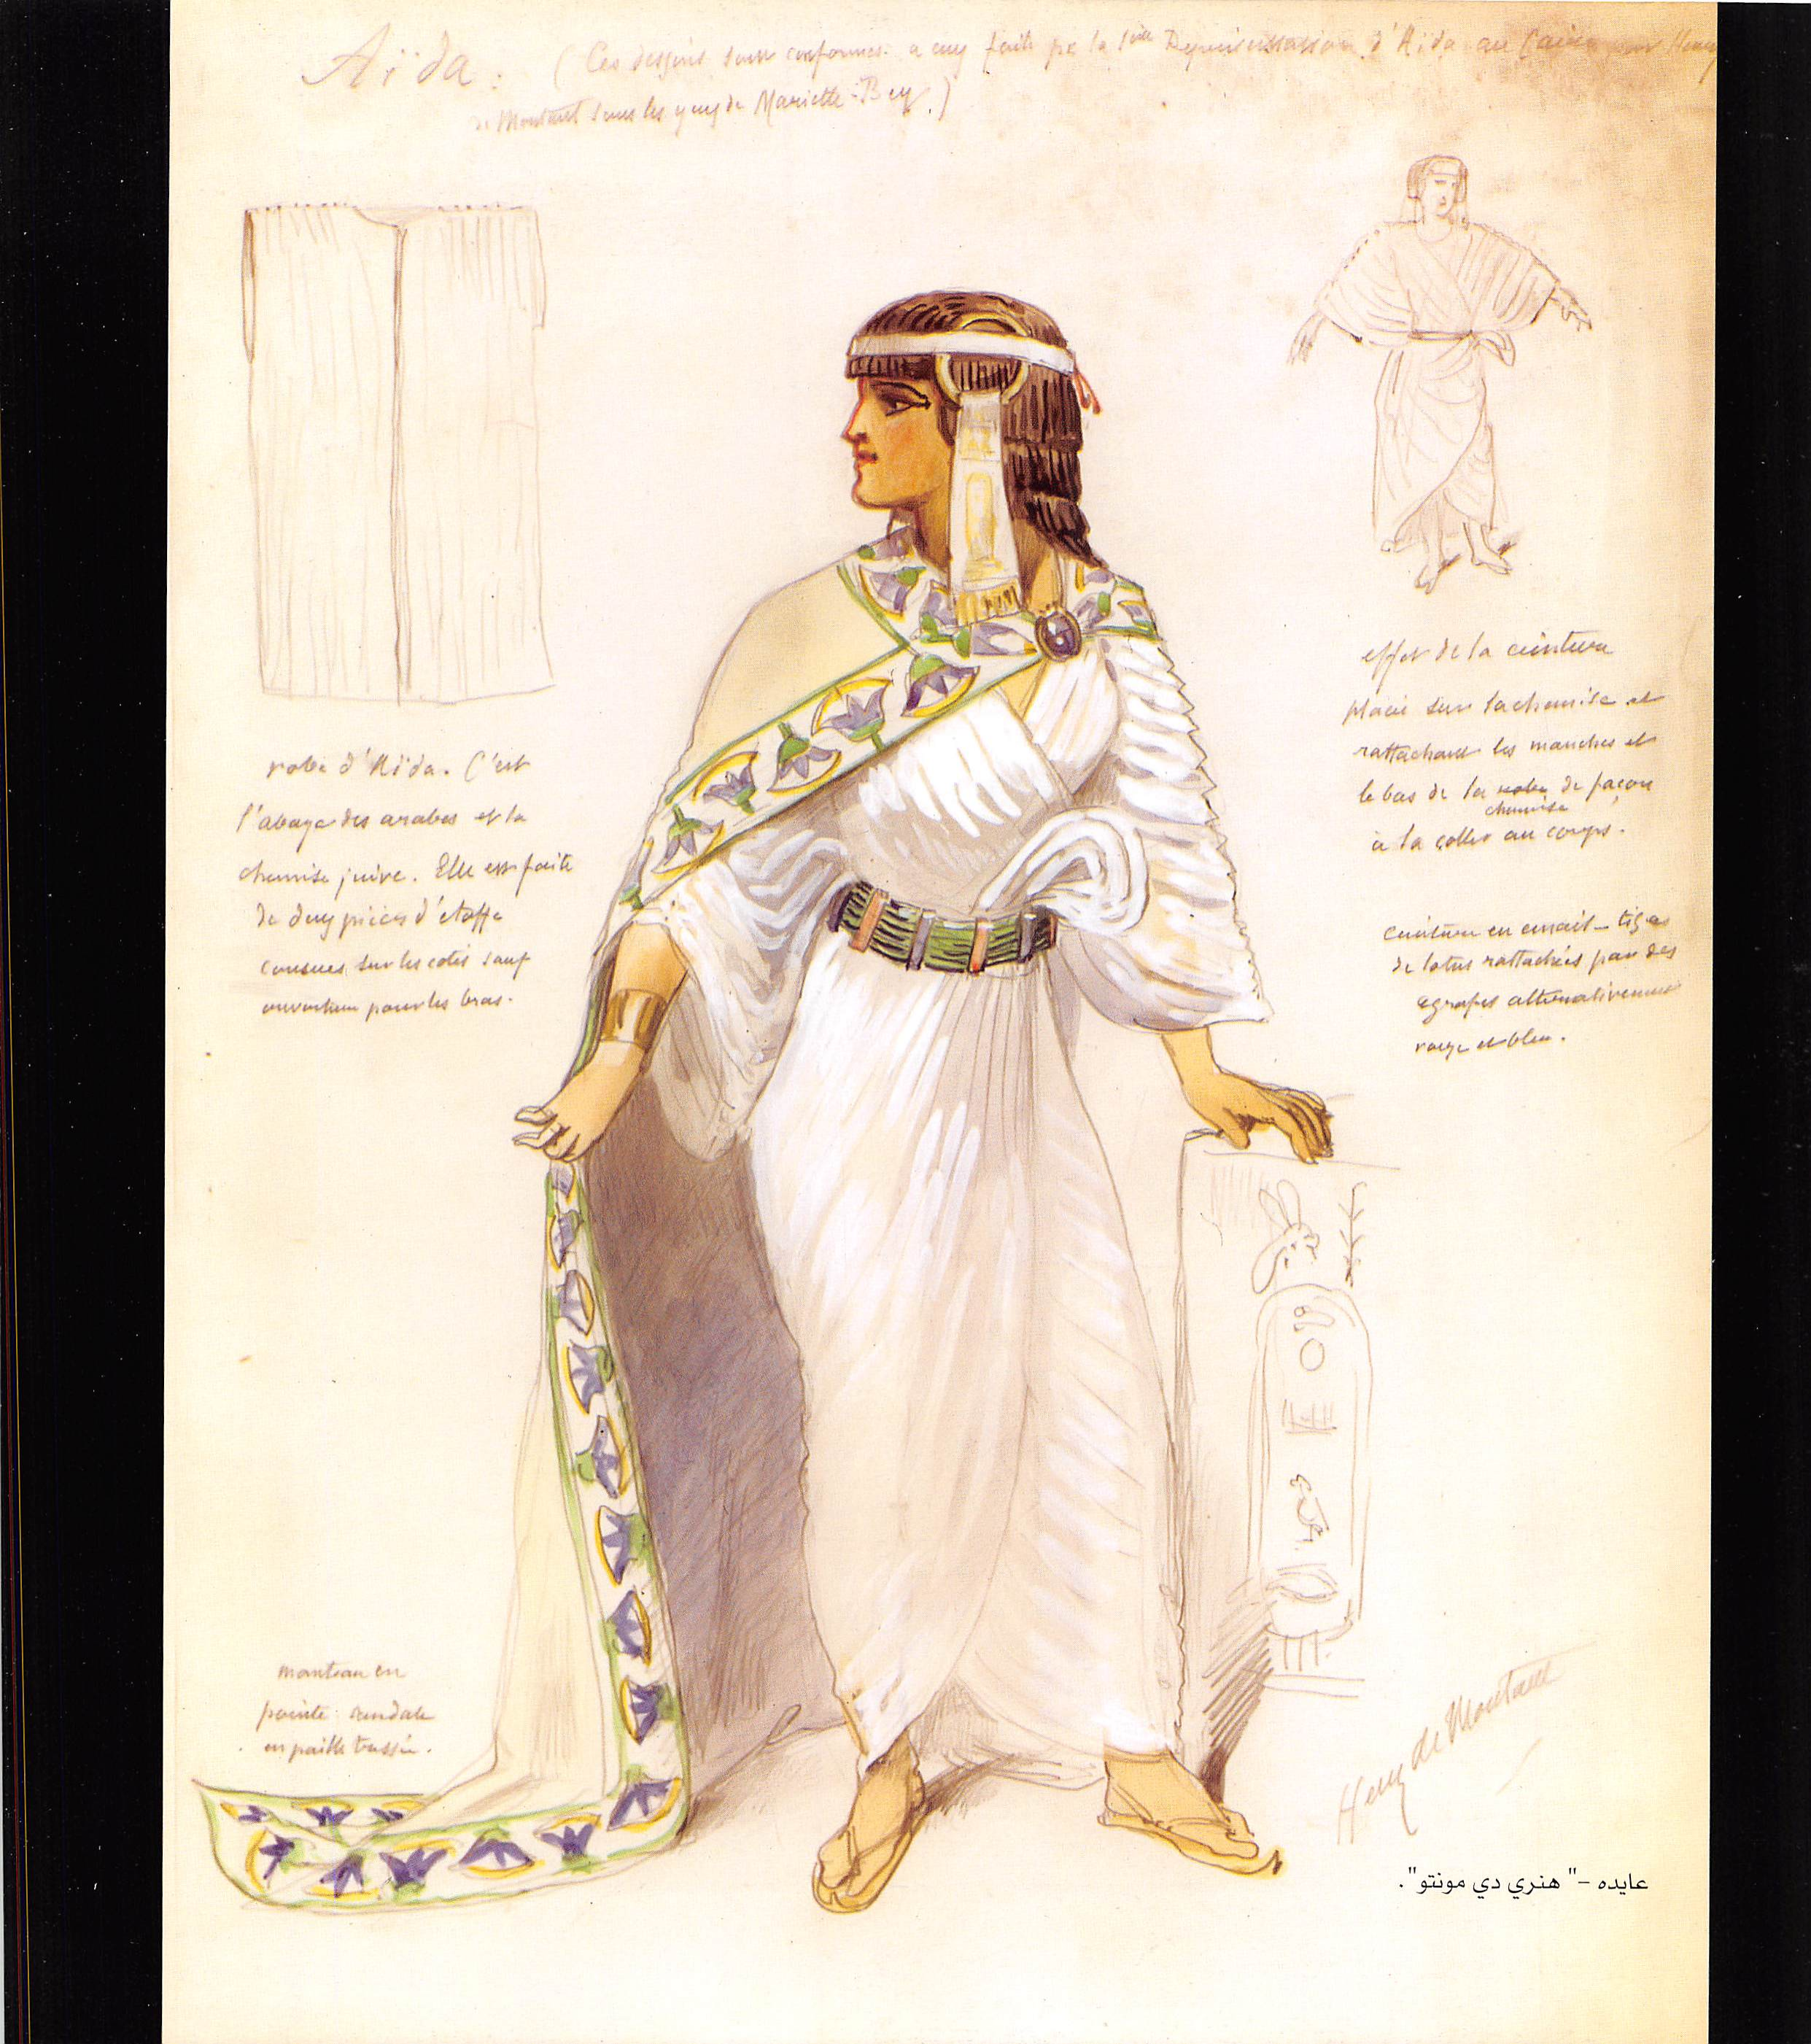 Aïda : (Ces dessins sont conformes à ceux faits pr la 1ère Représentation d'Aïda au Caire par Henry
de Montaut sous les yeux de Mariette-Bey.)
robe d'Aïda. C'est
l'abaye des arabes et la
chemise juive. Elle est faite
de deux pièces d'étoffe
cousues sur les cotés sauf
ouverture pour les bras.
effet de la ceinture
placée sur la chemise et
rattachant les manches et
le bas de la robe de façon
chemise
à la coller au corps.
ceinture en émail - tiges
de lotus rattachées par des
agrafes alternativement
rouge et bleu.
manteau en
pointe. sandale
en paille tressée.
Henry de Montaut
عايده -" هنري دي مونتو".